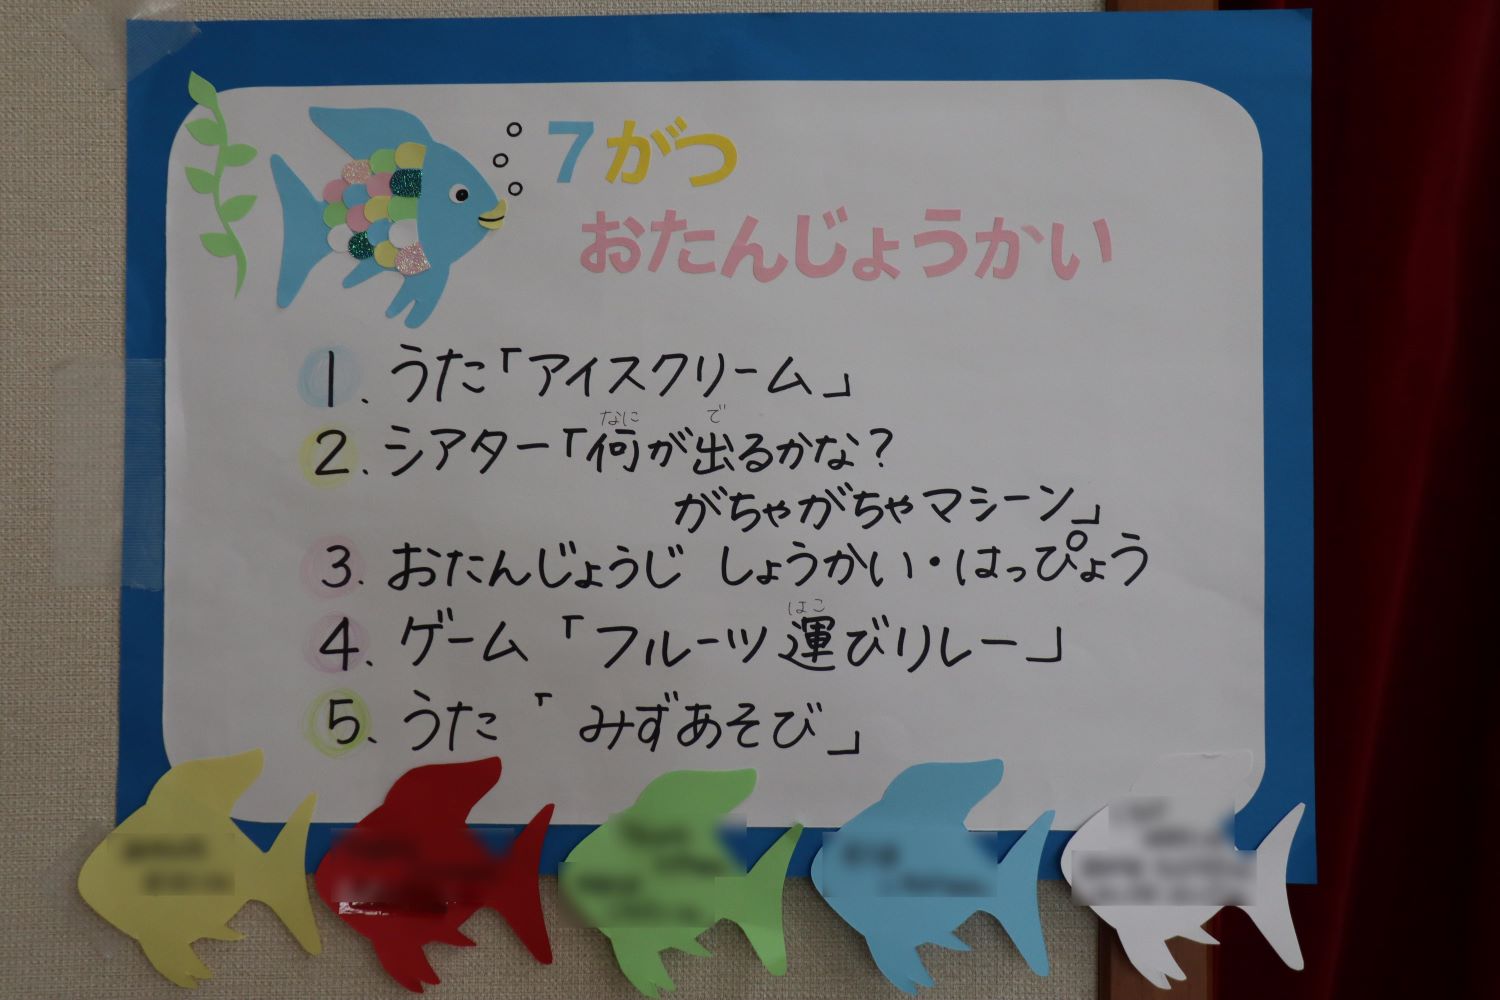 7がつ
おたんじょうかい
1. うた「アイスクリーム」
なに で
2. シアター「何が出るかな?
がちゃがちゃマシーン」
3. おたんじょうじ しょうかい・はっぴょう
はこ
4. ゲーム「フルーツ運びリレー」
5. うた「みずあそび」